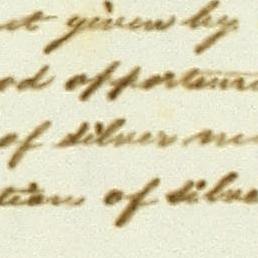 st given by
od opportuni
of silver mi
tion of silve